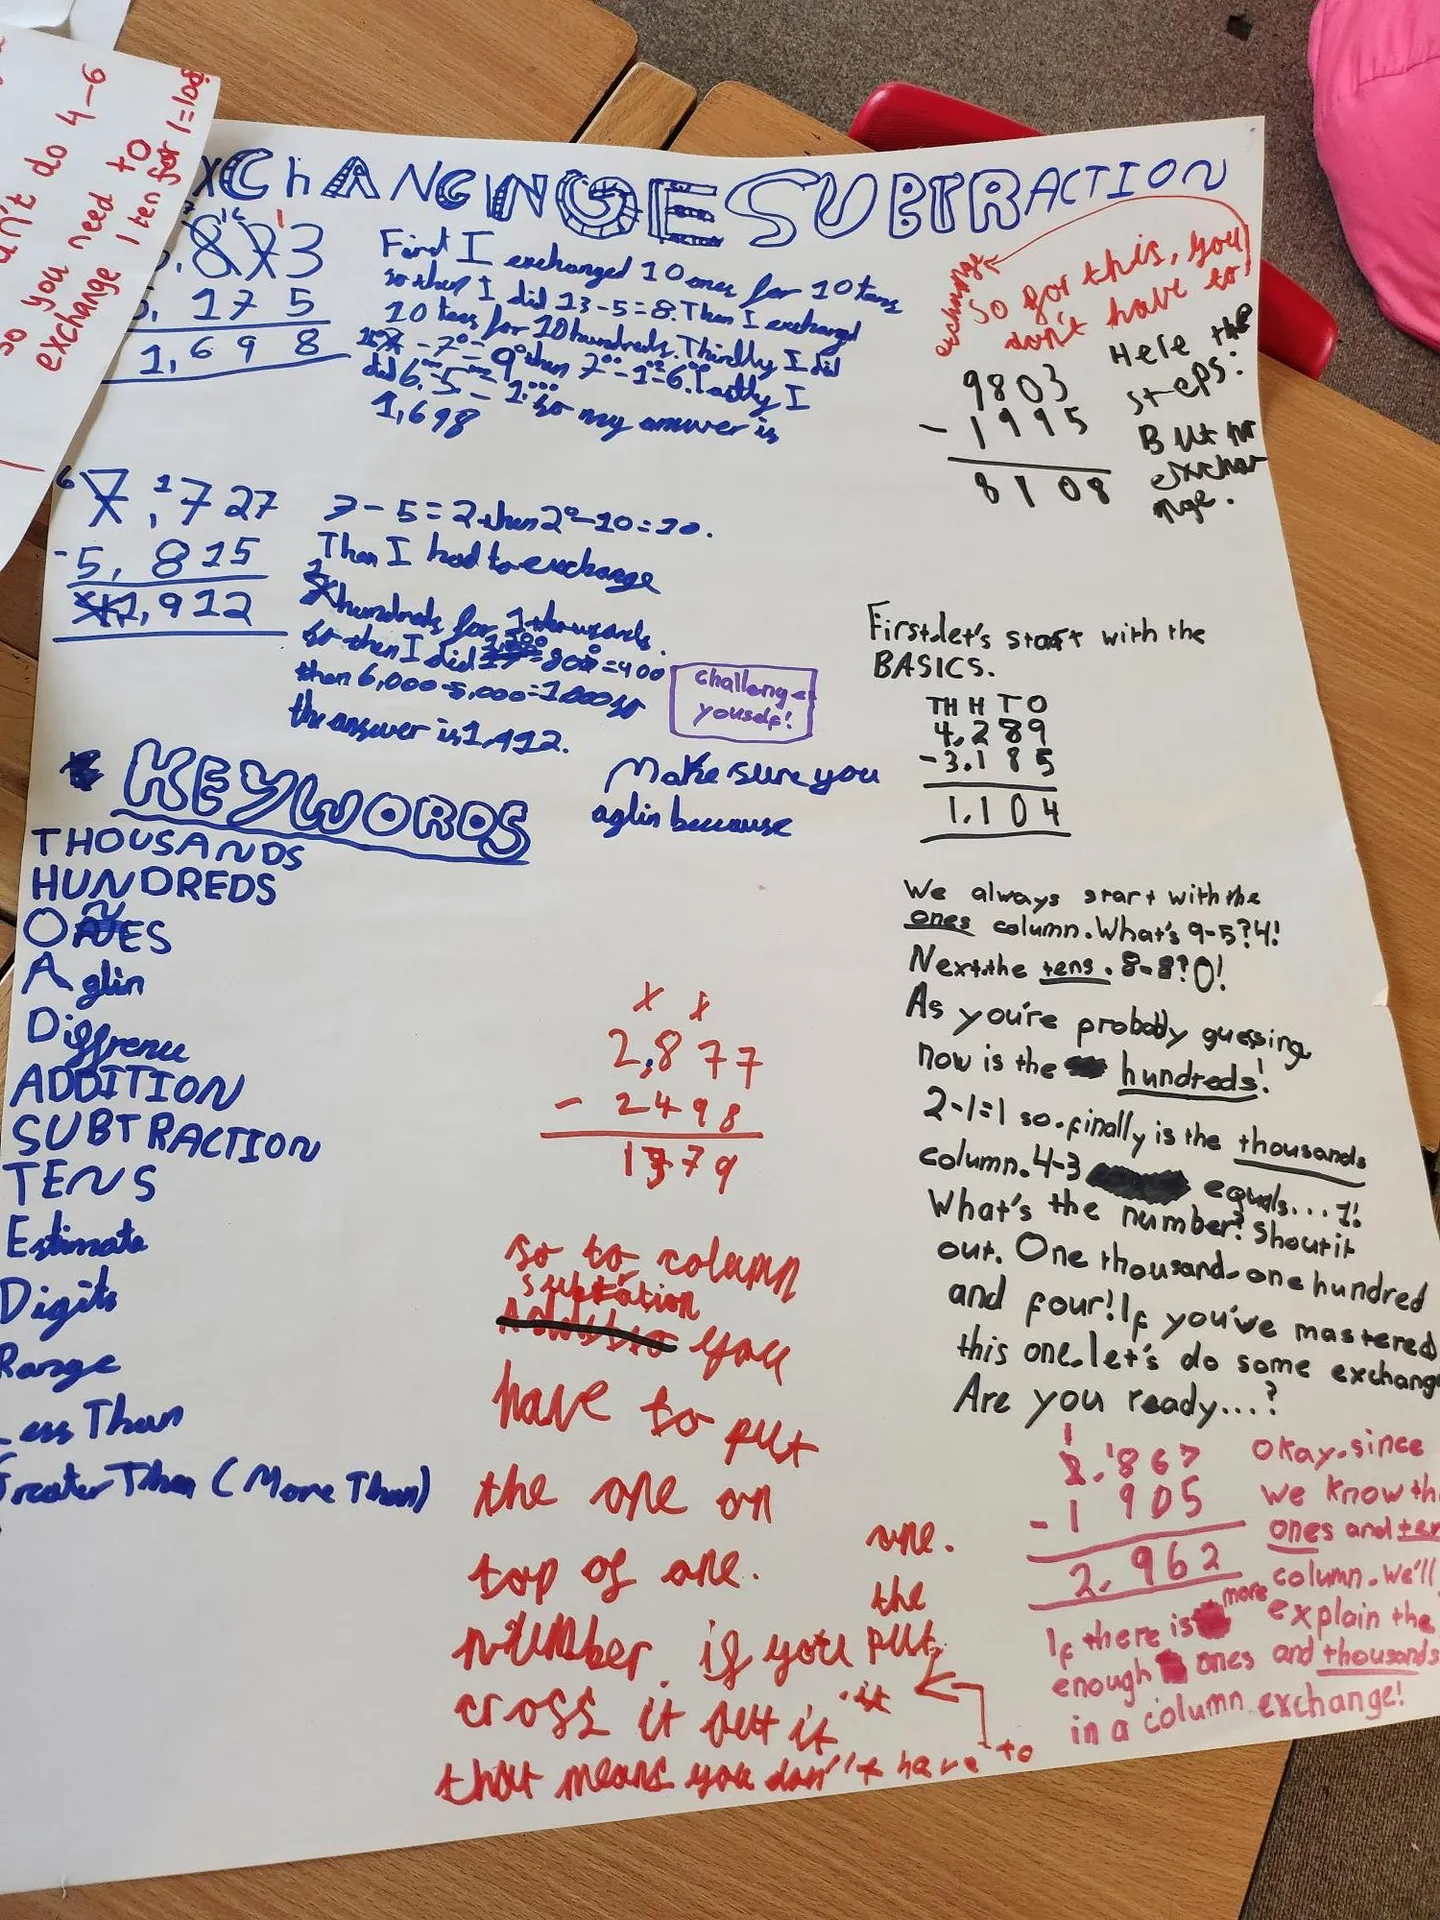 n't do 4-6
so you need to
exchange 1 ten for 1=log
XCHANGING SUBTRACTION
8 7 3
1 7 5
1,698
First I exchanged 10 ones for 10 tens
so then I did 13-5=8. Then I exchanged
10 tens for 10 hundreds. Thirdly I did
- 7° = 9° then 7°° - 1°° = 6°° Lastly I
did 6,°°° - 5°°° = 1°°° so my answer is
1,698
exchange
So for this, you
don't have to
9803
- 1995
8108
Hele the
steps:
But no
exchan
nge.
6 7,1727
-5, 815
1,912
7-5=2 then 2°-10=10.
Then I had to exchange
hundreds for 1 thousands.
so then I did = 800=900
then 6,000-5,000=1,000 so
the answer is 1,912.
challenge
youself!
First.let's start with the
BASICS.
TH H T O
4,289
-3.185
1,104
KEYWORDS
THOUSANDS
HUNDREDS
ONES
Aglin
Diffrence
ADDITION
SUBTRACTION
TENS
Estimate
Digits
Range
Less Than
Greater Then (More Than)
Make sure you
aglin because
We always start with the
ones column. What's 9-5?4!
Next.the tens. 8-8?0!
As you're probobly guessing
now is the hundreds!
2-1=1 so.finally is the thousands
column. 4-3 equals...1!
What's the number? Shout it
out. One thousand-one hundred
and four! If you've mastered
this one.let's do some exchang
Are you ready...?
x x
2,877
- 2498
1379
so to column
subtation
you
have to put
the one on
top of one.
number. if you put
cross it put it
that means you don't have to
une.
the
it
1
2.1867
-1 905
2.962
Okay.since
we know th
ones and ten
column. We'll
explain the
and thousands
If there is more
enough ones
in a column exchange!